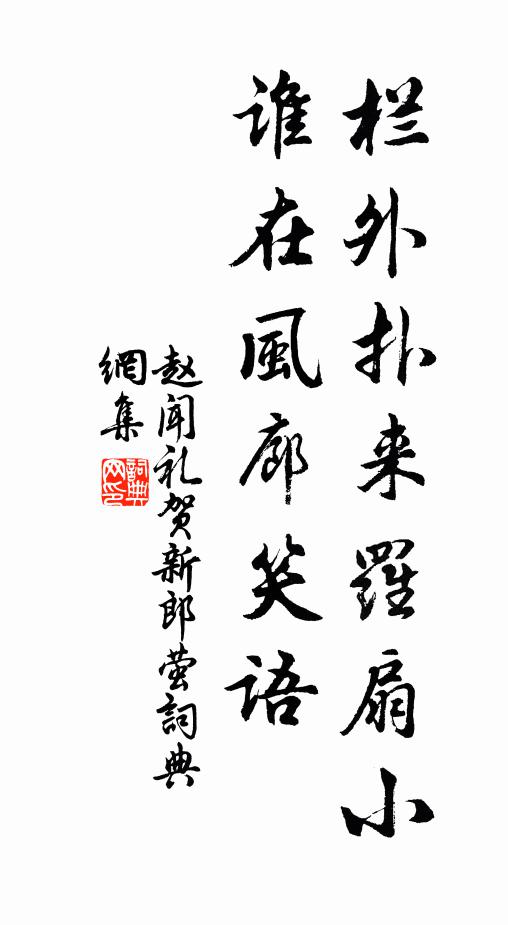 栏外扑来羅扇小
谁在風廊笑语
赵闻礼贺新郎萤詞典
網集
詞典
网印